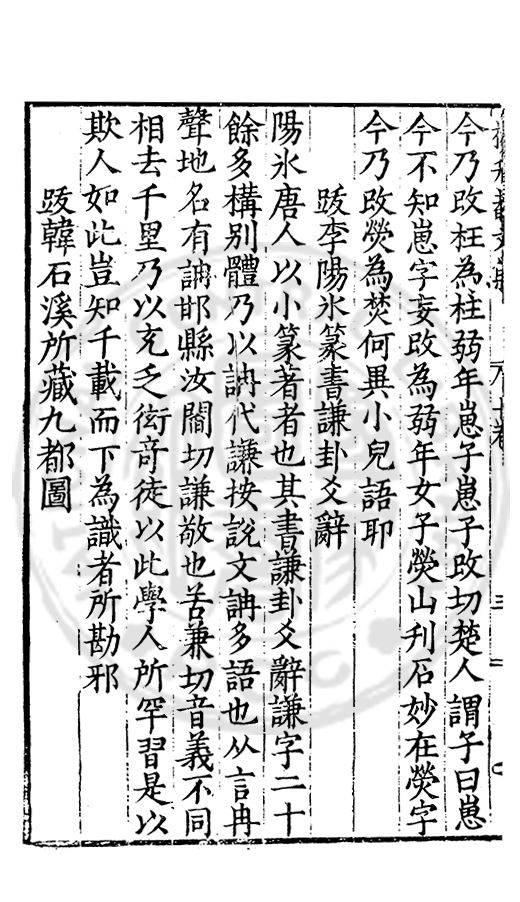 今乃改枉為柱弱年崽子崽子改切楚人謂子曰崽
今不知崽字妄改為弱年女子熒山刋石妙在熒字
今乃改熒為焚何異小兒語耶
跋李陽氷篆書謙卦爻辭
陽氷唐人以小篆著者也其書謙卦爻辭謙字二十
餘多構别體乃以詶代謙按說文詶多語也从言冉
聲地名有詶邯縣汝閻切謙敬也苦兼切音義不同
相去千里乃以充乏衒竒徒以此學人所罕習是以
欺人如此豈知千載而下為識者所勘邪
跋韓石溪所藏九都圖